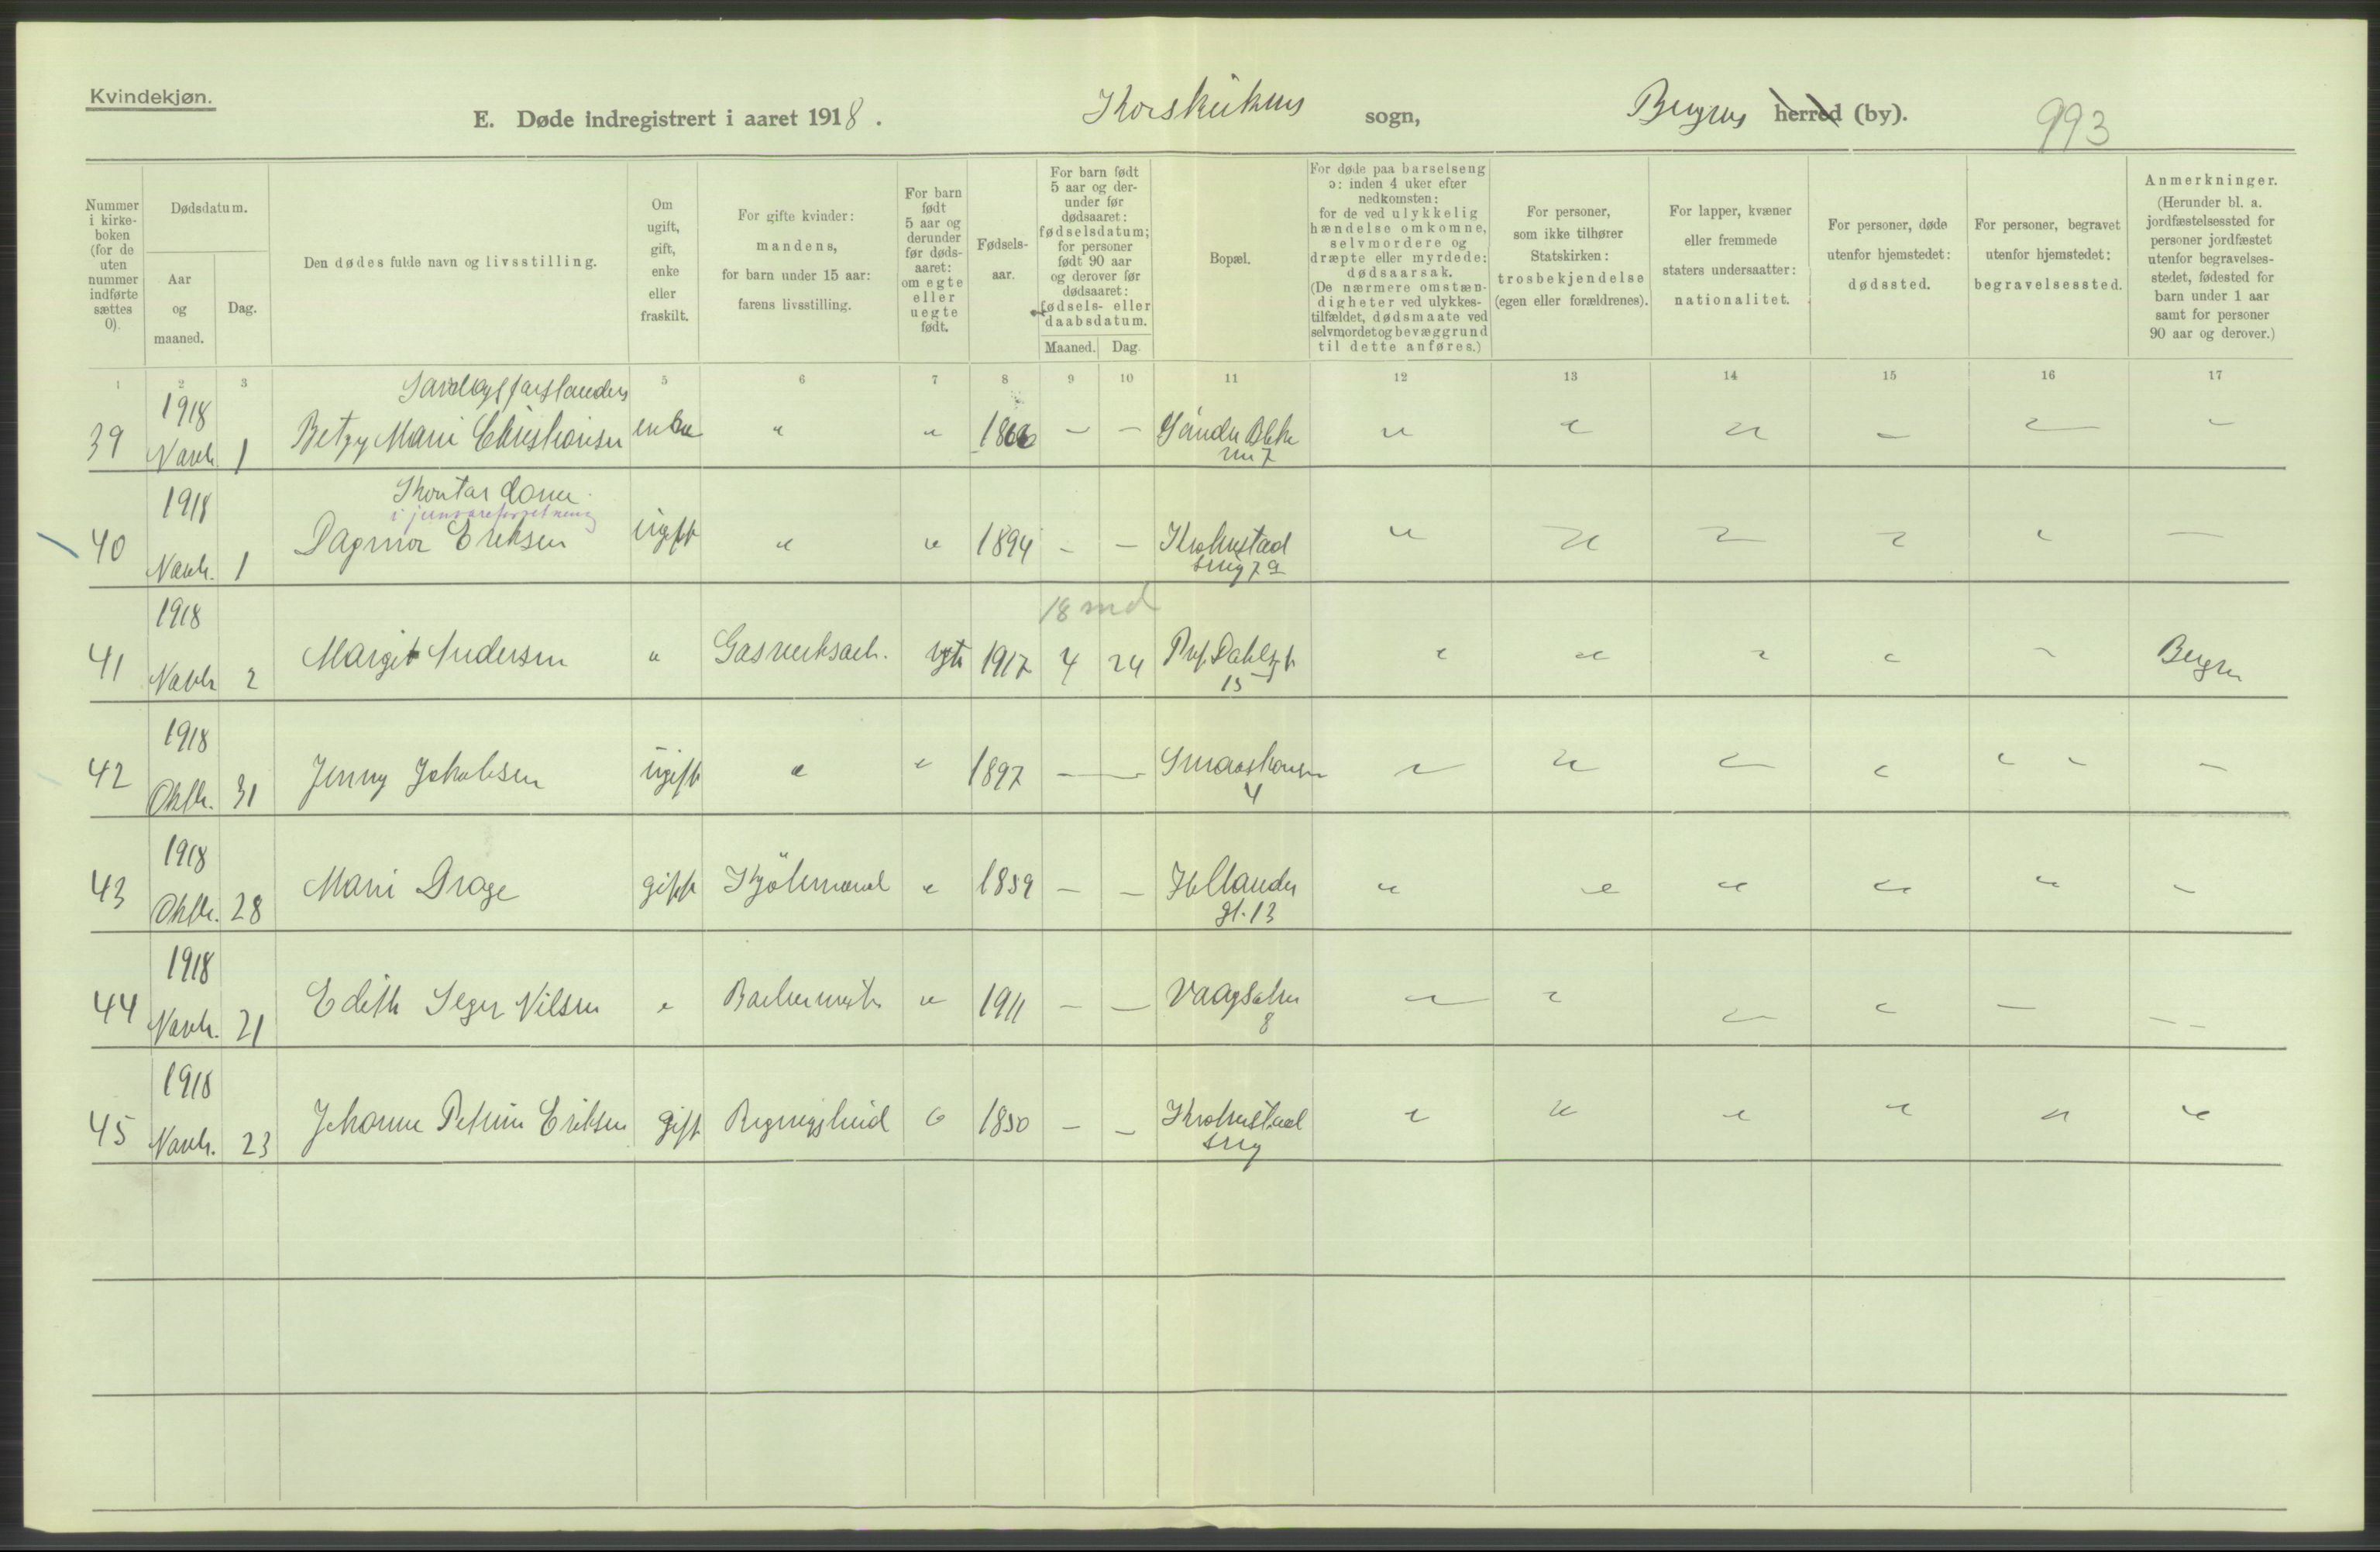 Kvindekjøn.
E. Døde indregistrert i aaret 1918. Korskirkens sogn, Bergens herred (by). 993
Nummer i kirke-boken (for de uten nummer indførte sættes 0).
Dødsdatum.
Aar og maaned.
Dag.
Den dødes fulde navn og livsstilling.
Om ugift, gift, enke eller fraskilt.
For gifte kvinder: mandens, for barn under 15 aar: farens livsstilling.
For barn født 5 aar og derunder før døds-aaret: om egte eller uegte født.
Fødsels-aar.
For barn født 5 aar og der-under før dødsaaret: fødselsdatum; for personer født 90 aar og derover før dødsaaret: fødsels- eller daabsdatum.
Maaned. Dag.
Bopæl.
For døde paa barselseng ɔ: inden 4 uker efter nedkomsten: for de ved ulykkelig hændelse omkomne, selvmordere og dræpte eller myrdede: dødsaarsak. (De nærmere omstæn-digheter ved ulykkes-tilfældet, dødsmaate ved selvmordet og bevæggrund til dette anføres.)
For personer, som ikke tilhører Statskirken: trosbekjendelse (egen eller forældrenes).
For lapper, kvæner eller fremmede staters undersaatter: nationalitet.
For personer, døde utenfor hjemstedet: dødssted.
For personer, begravet utenfor hjemstedet: begravelsessted.
Anmerkninger. (Herunder bl. a. jordfæstelsessted for personer jordfæstet utenfor begravelses-stedet, fødested for barn under 1 aar samt for personer 90 aar og derover.)
1 2 3 5 6 7 8 9 10 11 12 13 14 15 16 17
39 1918 Novbr. 1 Betzy Marie Christiansen enke " " 1866 — — nr 7 " " " — " "
40 1918 Novbr. 1 Kontordame i jernvareforretning Dagmar Eriksen ugift " " 1894 — — Krohnstad smug 7 a " " " " " —
18 md
41 1918 Novbr 2 Margit Andersen " Gasverksarb. egte 1917 4 24 Prof. Dahlsgt 15 " " " " " Bergen
42 1918 Oktbr. 31 Jenny Jakobsen ugift " " 1897 — — 4 " " " " " " —
43 1918 Oktbr. 28 Marie Drage gift Kjøbmand " 1859 — — Hollander gt. 13 " " " " " —
44 1918 Novbr. 21 Edith Nilsen " " 1911 — — 8 " " " " — — —
45 1918 Novbr. 23 Johanne Petrine Eriksen gift " 1850 — — Krohnstad smug " " " " " "